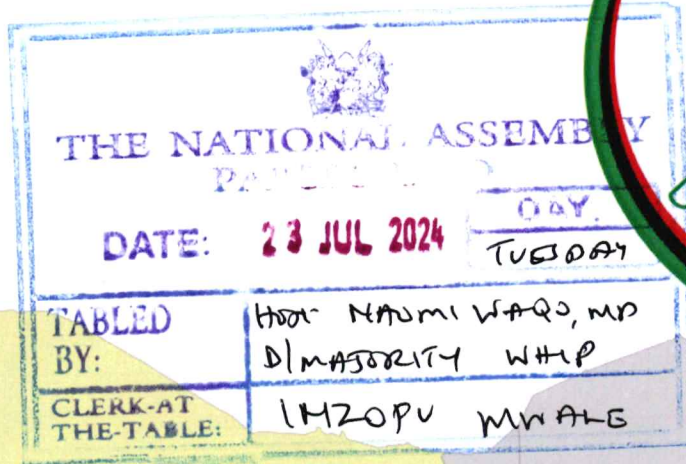 THE NATIONAL ASSEMBLY
DATE: 23 JUL 2024
DAY.
TUESDAY
TABLED BY:
HON NAOMI WAQO, MP
D/MAJORITY WHIP
CLERK-AT THE-TABLE:
MWALE